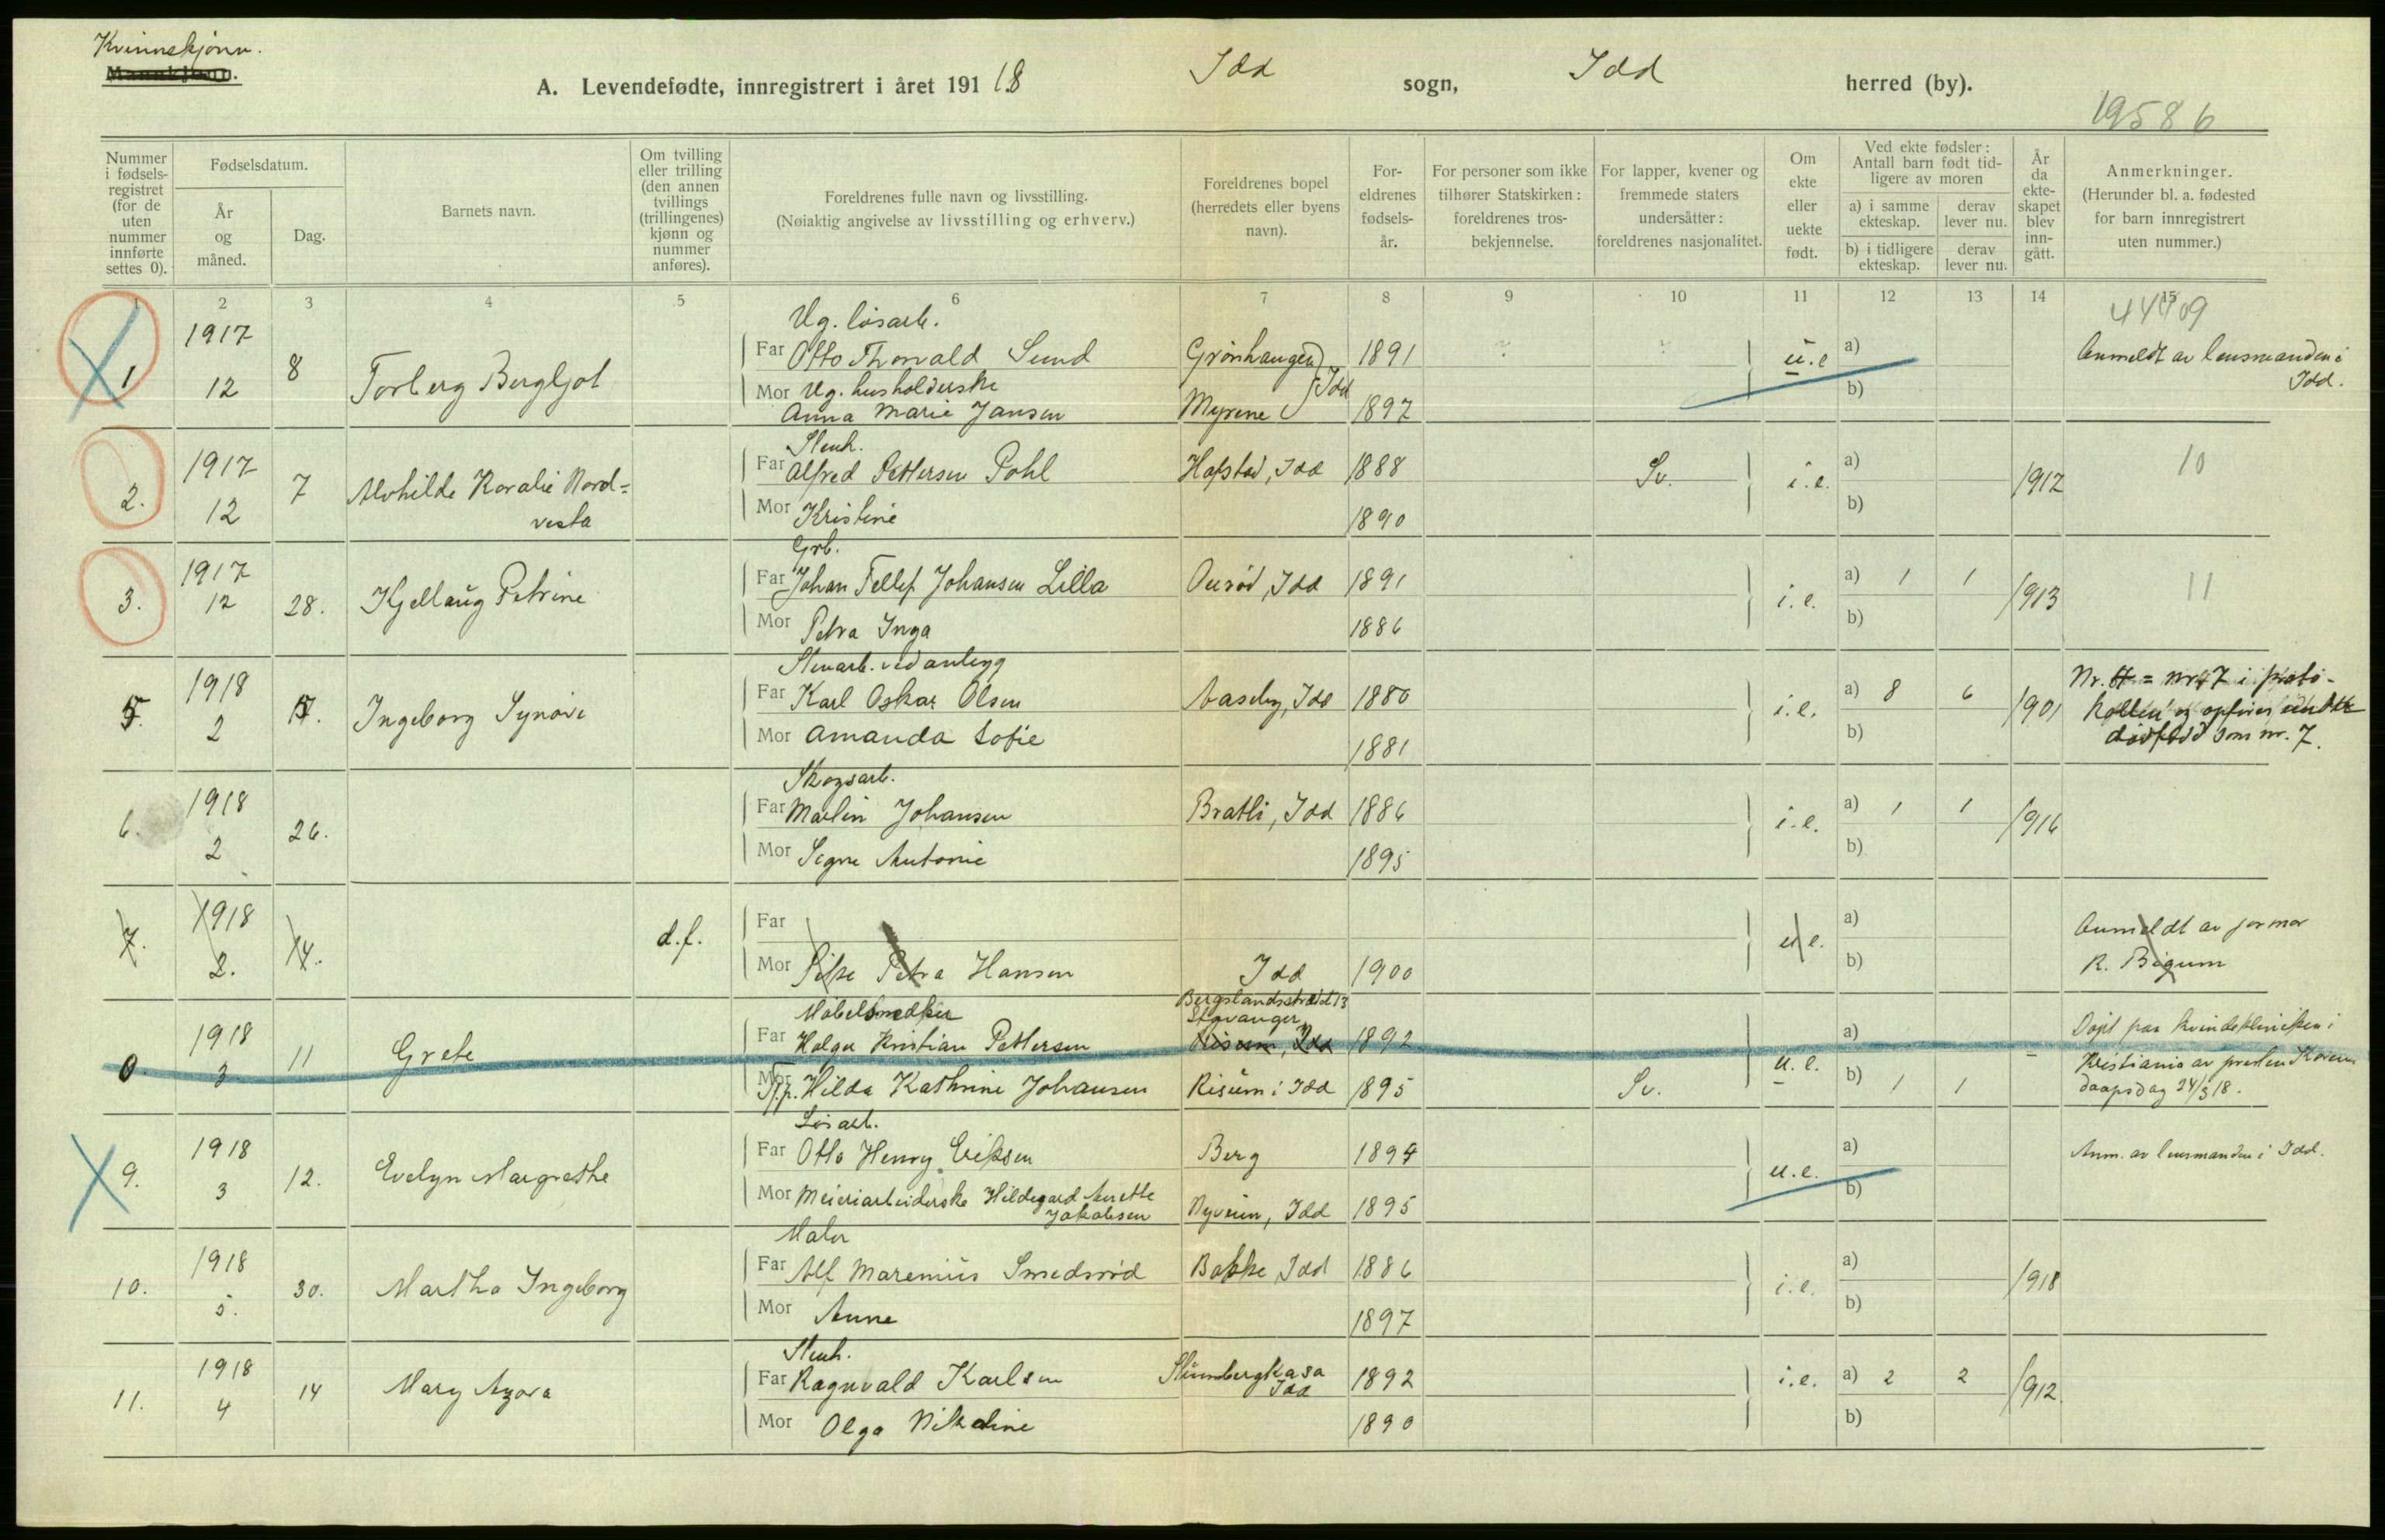 Kvinnekjønn.
Mannkjønn.
A. Levendefødte, innregistrert i året 1918
Idd sogn, Idd herred (by).
19586
Nummer i fødsels-registret (for de uten nummer innførte settes 0).
Fødselsdatum.
År og måned.
Dag.
Barnets navn.
Om tvilling eller trilling (den annen tvillings (trillingenes) kjønn og nummer anføres).
Foreldrenes fulle navn og livsstilling.
(Nøiaktig angivelse av livsstilling og erhverv.)
Foreldrenes bopel (herredets eller byens navn).
For-eldrenes fødsels-år.
For personer som ikke tilhører Statskirken: foreldrenes tros-bekjennelse.
For lapper, kvener og fremmede staters undersåtter: foreldrenes nasjonalitet.
Om ekte eller uekte født.
Ved ekte fødsler: Antall barn født tid-ligere av moren
a) i samme ekteskap.
derav lever nu.
b) i tidligere ekteskap.
derav lever nu.
År da ekte-skapet blev inn-gått.
Anmerkninger.
(Herunder bl. a. fødested for barn innregistrert uten nummer.)
1 2 3 4 5 6 7 8 9 10 11 12 13 14 15
44709
Ug. løsarb.
1 1917 12 8 Torberg Bergljot
Far Otto Thorvald Sund Grønhaugen 1891 u.e a)
Mor Ug. husholderske Idd b)
Anna Marie Jansen Myrene 1897
Anmeldt av lensmanden i
Idd.
Stenh.
2. 1917 12 7 Alvhilde Koralie Nord=
vesta
Far Alfred Pettersen Pohl Hofstad, Idd 1888 Sv. i.e. a) 1912 10
Mor Kristine 1890 b)
Grb.
3. 1917 12 28. Kjellaug Petrine
Far Johan Tellef Johansen Lilla Ourød, Idd 1891 i.e. a) 1 1 1913 11
Mor Petra Inga 1886 b)
Stenarb. ved anlegg
5. 1918 2 17. Ingeborg Synøve
Far Karl Oskar Olsen Aaseby, Idd 1880 i.e. a) 8 6 1901
Mor Amanda Sofie 1881 b)
dødfød som nr. 7.
Skogsarb.
6. 1918 2 26.
Far Martin Johansen Bratli, Idd 1886 i.e. a) 1 1 1916
Mor Signe Antonie 1895 b)
7. 1918 2. 14. d.f.
Far u.e. a)
Mor Pike Petra Hansen Idd 1900 b)
Anmeldt av jormor
R. Bigum
Møbelsnedker Bergslandsstræde 13
Stavanger
0 1918 3 11 Grete
Far Holger Kristian Pettersen Risum, Idd 1892 u.e. a)
Mor Tj.p. Hilda Kathrine Johansen Risum i Idd 1895 Sv. b) 1 1
Døpt paa kvindekliniken i
Kristiania av presten Koren
daapsdag 24/3 18.
Løsarb.
9. 1918 3 12. Evelyn Margrethe
Far Otto Henry Eriksen Berg 1894 u.e. a)
Mor Meieriarbeiderske Hildegard Anette Nyveien, Idd 1895 b)
Jakobsen
Anm. av lensmanden i Idd.
Maler
10. 1918 5. 30. Martha Ingeborg
Far Alf Marenius Smedsrød Bakke, Idd 1886 i.e. a) 1918
Mor Anne 1897 b)
Stenh.
11. 1918 4 14 Mary Azora
Far Ragnvald Karlsen Idd 1892 i.e. a) 2 2 1912.
Mor Olga Nikoline 1890 b)